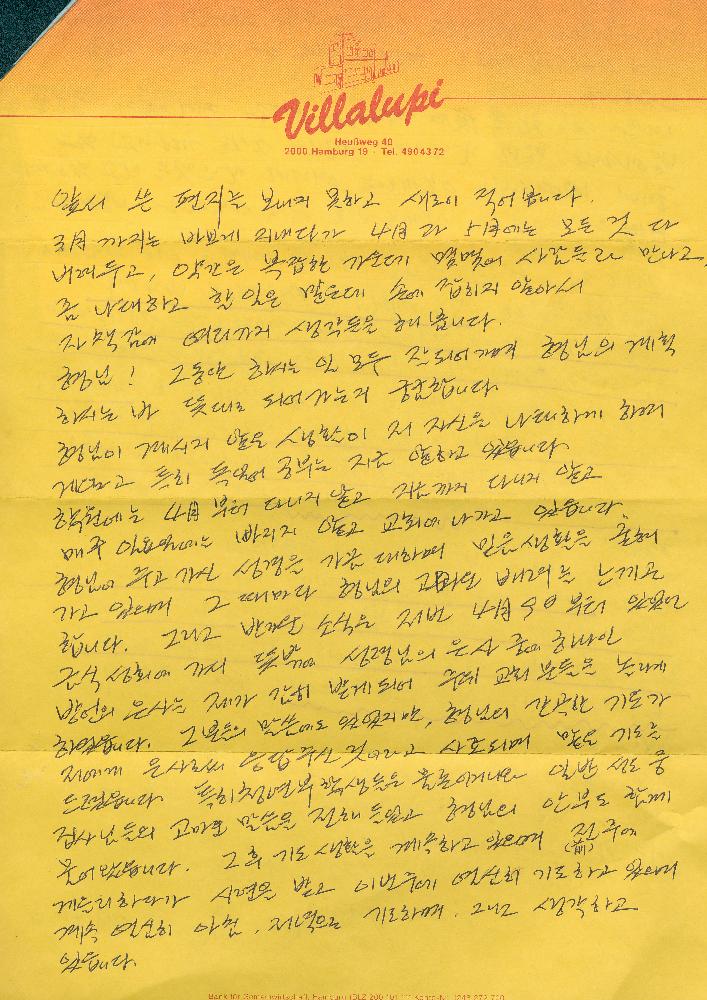 Villalupi
Heußweg 40
2000 Hamburg 19 · Tel. 4904372
앞서 쓴 편지는 보내지 못하고 새로이 적어 봅니다.
3月 까지는 바쁘게 지내다가 4月 과 5月에는 모든 것 다
버려두고, 약간은 복잡한 가운데 몇몇 사람들과 만나고,
좀 나태하고 할 일은 많은데 손에 잡히지 않아서
여러가지 생각들을 해 봅니다.
형님! 그동안 하시는 일 모두 잘 되어가며 형님의 계획
하시는 바 뜻대로 되어가는지 궁금합니다.
형님이 계시지 않은 생활이 저 자신을 나태하게 하며
특히 독일어 공부는 지금 않하고 있습니다.
학원에는 4月 부터 다니지 않고 지금까지 다니지 않고
매주 일요일에는 빠지지 않고 교회에 나가고 있습니다.
형님이 주고 가신 성경을 가끔 대하며 믿음생활을 통해
가고 있으며 그 때마다 형님의 고마운 배려를 느끼곤
합니다. 그리고 반가운 소식은 저번 4月 9日 부터 있었던
금식성회에 가서 뜻밖에 성령님의 은사 중에 하나인
방언의 은사를 제가 감히 받게되어 주위 교회 분들을 놀라게
하였습니다. 그분들의 말씀에도 있었지만, 형님의 간곡한 기도가
저에게 은사로써 응답주신 것이라고 사료되며 많은 기도를
드렸습니다. 특히 청년부 학생들은 물론이거니와 일반 성도 중
집사님들의 고마운 말씀을 전해 들었고 형님의 안부도 함께
물어 왔습니다. 그 후 기도생활을 계속하고 있으며 전(前)주에
게을리하다가 시련을 받고 이번주에 열심히 기도하고 있으며
계속 열심히 아침, 저녁으로 기도하며, 그리고 생각하고
있습니다.
Bank für Gemeinwirtschaft, Hamburg (BLZ 200 101 11)